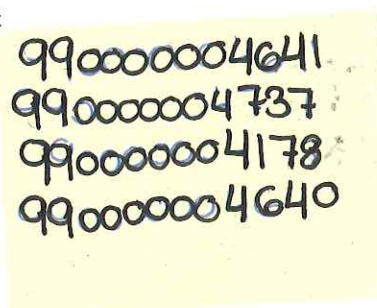 990000004641
990000004737
990000004178
990000004640